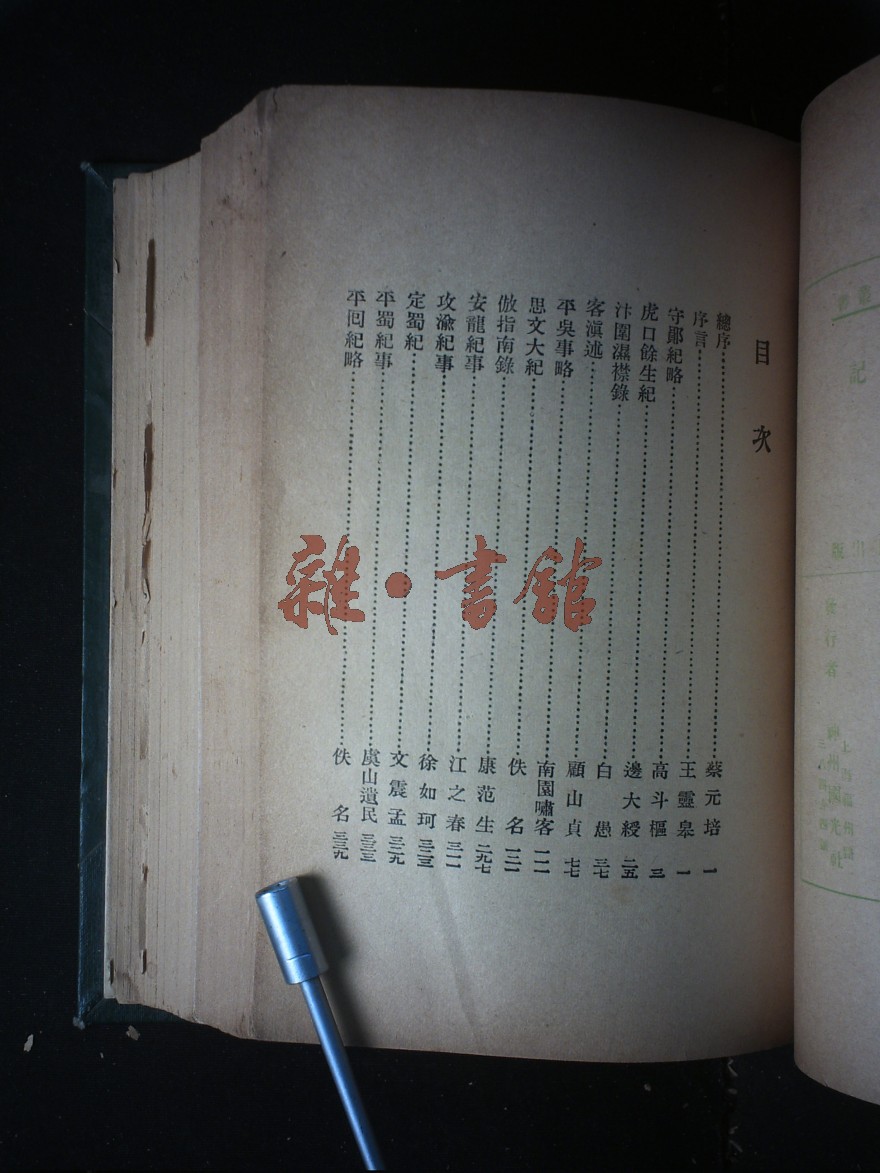 記
版
發行者 神州國光社
目次
總序……蔡元培 一
序言……王靈皋 一
守鄖紀略……高斗樞 三
虎口餘生紀……邊大綬 二五
汴圍濕襟錄……白愚 三七
客滇述……顧山貞 七七
平吳事略……南園嘯客 一一一
思文大紀……佚名 一二一
倣指南錄……康范生 二九七
安龍紀事……江之春 三一一
攻渝紀事……徐如珂 三二三
定蜀紀……文震孟 三二九
平蜀紀事……虞山遺民 三三三
平回紀略……佚名 三三九
雜·書館